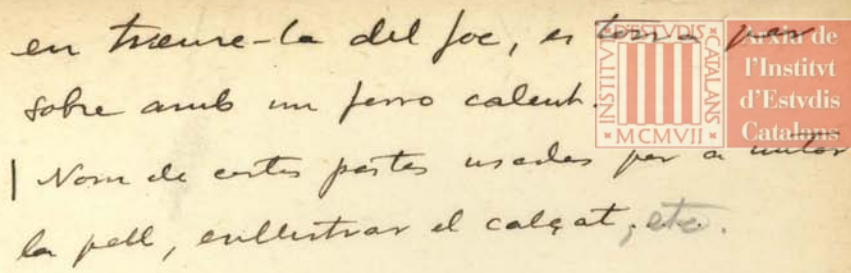 en treure-la del foc, es torra per
sobre amb un ferro calent.
| Nom de certes pastes usades per a untar
la pell, enllustrar el calçat, etc.
INSTITVT D'ESTVDIS CATALANS
MCMVII
Arxiu de
l'Institvt
d'Estvdis
Catalans